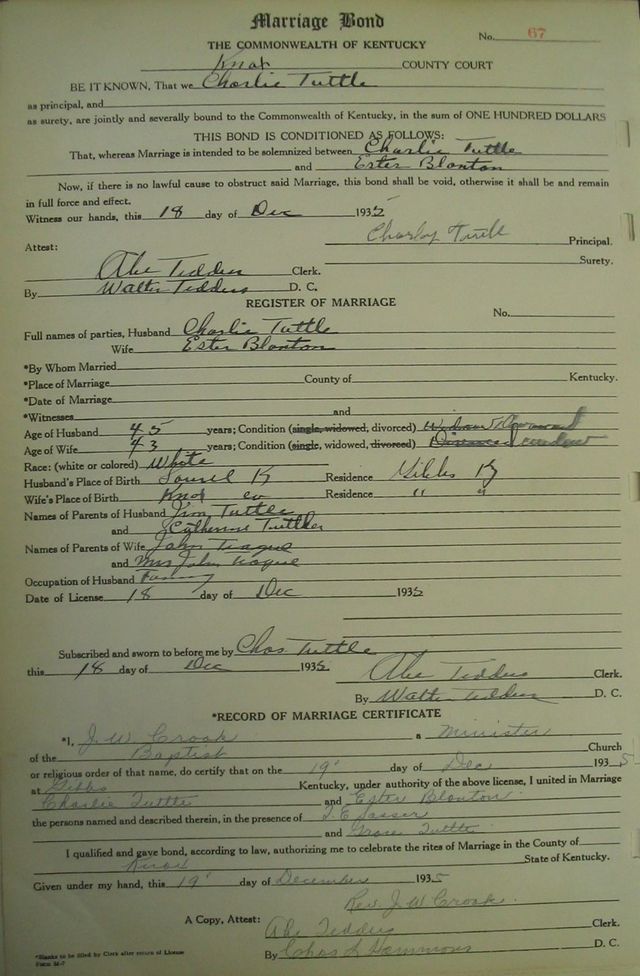 Marriage Bond
No. 67
THE COMMONWEALTH OF KENTUCKY
Knox COUNTY COURT
BE IT KNOWN, That we Charlie Tuttle
as principal, and
as surety, are jointly and severally bound to the Commonwealth of Kentucky, in the sum of ONE HUNDRED DOLLARS
THIS BOND IS CONDITIONED AS FOLLOWS:
That, whereas Marriage is intended to be solemnized between Charlie Tuttle
and Ester Blanton
Now, if there is no lawful cause to obstruct said Marriage, this bond shall be void, otherwise it shall be and remain
in full force and effect.
Witness our hands, this 18 day of Dec 1935
Charley Tuttle Principal.
Attest:
Surety.
Abe Tedders Clerk.
By Walter Tedders D. C.
REGISTER OF MARRIAGE
No.
Full names of parties, Husband Charlie Tuttle
Wife Ester Blanton
*By Whom Married
*Place of Marriage County of Kentucky.
*Date of Marriage
*Witnesses and
Age of Husband 45 years; Condition (single, widowed, divorced)
Age of Wife 43 years; Condition (single, widowed, divorced) Divorced widow
Race: (white or colored) White
Husband's Place of Birth Laurel K Residence Gibbs Ky
Wife's Place of Birth Knox co Residence " "
Names of Parents of Husband Jim Tuttle
and Catherine Tuttle
Names of Parents of Wife John Teague
and Mrs John Teague
Occupation of Husband
Date of License 18 day of Dec 1935
Subscribed and sworn to before me by Chas Tuttle
this 18 day of Dec 1935 Abe Tedders Clerk.
By Walter Tedders D. C.
*RECORD OF MARRIAGE CERTIFICATE
*I, J. W. Crook a Minister
of the Baptist Church
or religious order of that name, do certify that on the 19' day of Dec 1935
at Gibbs Kentucky, under authority of the above license, I united in Marriage
Charlie Tuttle and Ester Blanton
the persons named and described therein, in the presence of T. E Sasser
and Grace Tuttle
I qualified and gave bond, according to law, authorizing me to celebrate the rites of Marriage in the County of
Knox State of Kentucky.
Given under my hand, this 19' day of December 1935
Rev. J. W. Crook.
A Copy, Attest: Abe Tedders Clerk.
By Chas L Hammons D. C.
*Blanks to be filled by Clerk after return of License
Form M-7